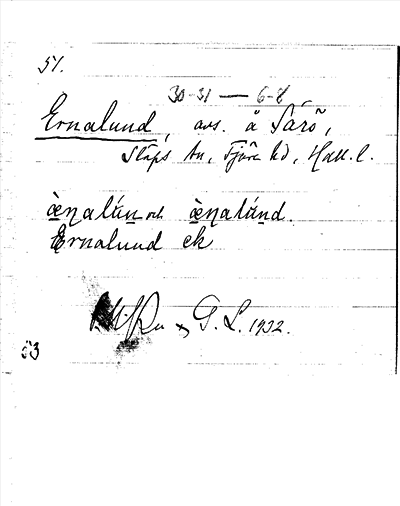 51.
30-31 — 6-8
Ernalund, avs. å Särö,
Släps sn, Fjäre hd, Hall. l.
ä̀ṇalún och ä̀ṇalúnd.
Ernalund ek
G. L. 1932.
53